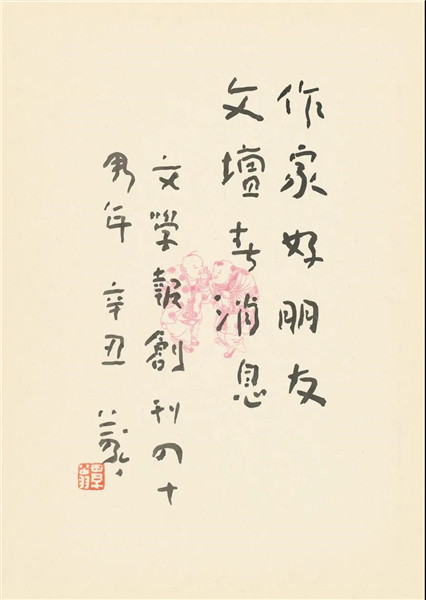 作家好朋友
文壇春消息
文學報創刊四十
周年 辛丑